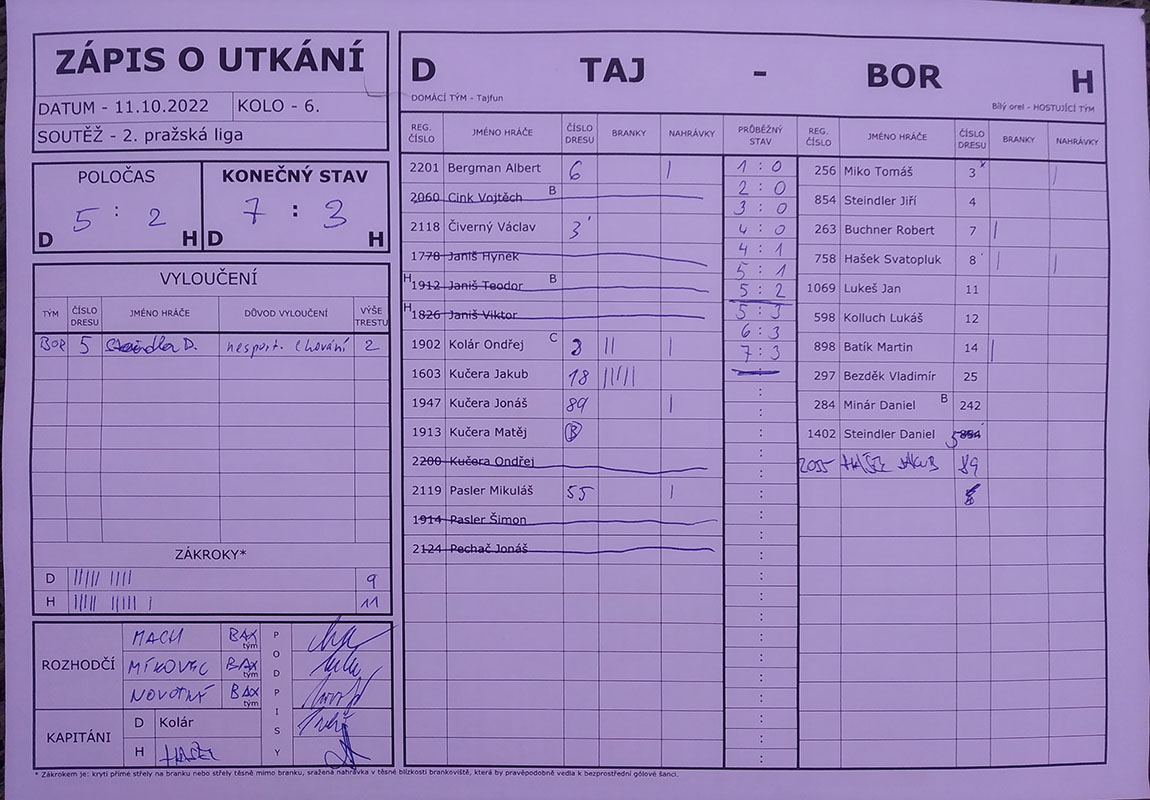 ZÁPIS O UTKÁNÍ
DATUM - 11.10.2022 KOLO - 6.
SOUTĚŽ - 2. pražská liga
POLOČAS KONEČNÝ STAV
5 : 2 7 : 3
D H D H
VYLOUČENÍ
TÝM ČÍSLO DRESU JMÉNO HRÁČE DŮVOD VYLOUČENÍ VÝŠE TRESTU
BOR 5 Steindler D. nesport. chování 2
ZÁKROKY*
D ||||| |||| 9
H ||||| ||||| | 11
ROZHODČÍ
MACH BAX tým
MÍKOVEC BAX tým
NOVOTNÝ BAX tým
PODPISY
KAPITÁNI
D Kolár
H HAŠEK
D TAJ - BOR H
DOMÁCÍ TÝM - Tajfun Bílý orel - HOSTUJÍCÍ TÝM
REG. ČÍSLO JMÉNO HRÁČE ČÍSLO DRESU BRANKY NAHRÁVKY PRŮBĚŽNÝ STAV REG. ČÍSLO JMÉNO HRÁČE ČÍSLO DRESU BRANKY NAHRÁVKY
2201 Bergman Albert 6 |
2060 Cink Vojtěch B
2118 Čiverný Václav 3
1778 Janiš Hynek
H 1912 Janiš Teodor B
H 1826 Janiš Viktor
1902 Kolár Ondřej C || |
1603 Kučera Jakub 18 |||||
1947 Kučera Jonáš 89 |
1913 Kučera Matěj B
2200 Kučera Ondřej
2119 Pasler Mikuláš 55 |
1914 Pasler Šimon
2124 Pechač Jonáš
1 : 0
2 : 0
3 : 0
4 : 0
4 : 1
5 : 1
5 : 2
5 : 3
6 : 3
7 : 3
256 Miko Tomáš 3 |
854 Steindler Jiří 4
263 Buchner Robert 7 |
758 Hašek Svatopluk 8 | |
1069 Lukeš Jan 11
598 Kolluch Lukáš 12
898 Batík Martin 14 |
297 Bezděk Vladimír 25
284 Minár Daniel B 242
1402 Steindler Daniel 5 854
2055 HAŠEK JAKUB 89
* Zákrokem je: krytí přímé střely na branku nebo střely těsně mimo branku, sražená nahrávka v těsné blízkosti brankoviště, která by pravěpodobně vedla k bezprostřední gólové šanci.